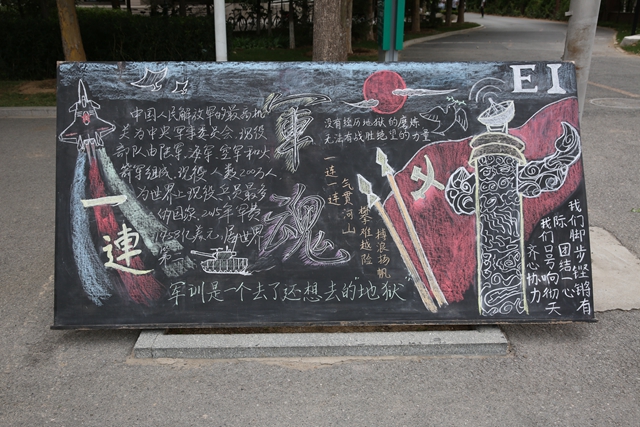 EI
中国人民解放军的最高机
关为中央军事委员会,现役
部队由陆军,海军,空军和火
箭军组成,现役人数200万人
为世界上现役兵员最多
的国家,2015年军费
1458亿美元,居世界
第二
一連
軍魂
没有经历地狱的磨炼
无法有战胜绝望的力量
一连一连
气贯河山
披难越险
持浪扬帆
我们脚步铿锵有
际,团结一心
我们口号响彻天
齐心协力
军训是一个去了还想去的地狱